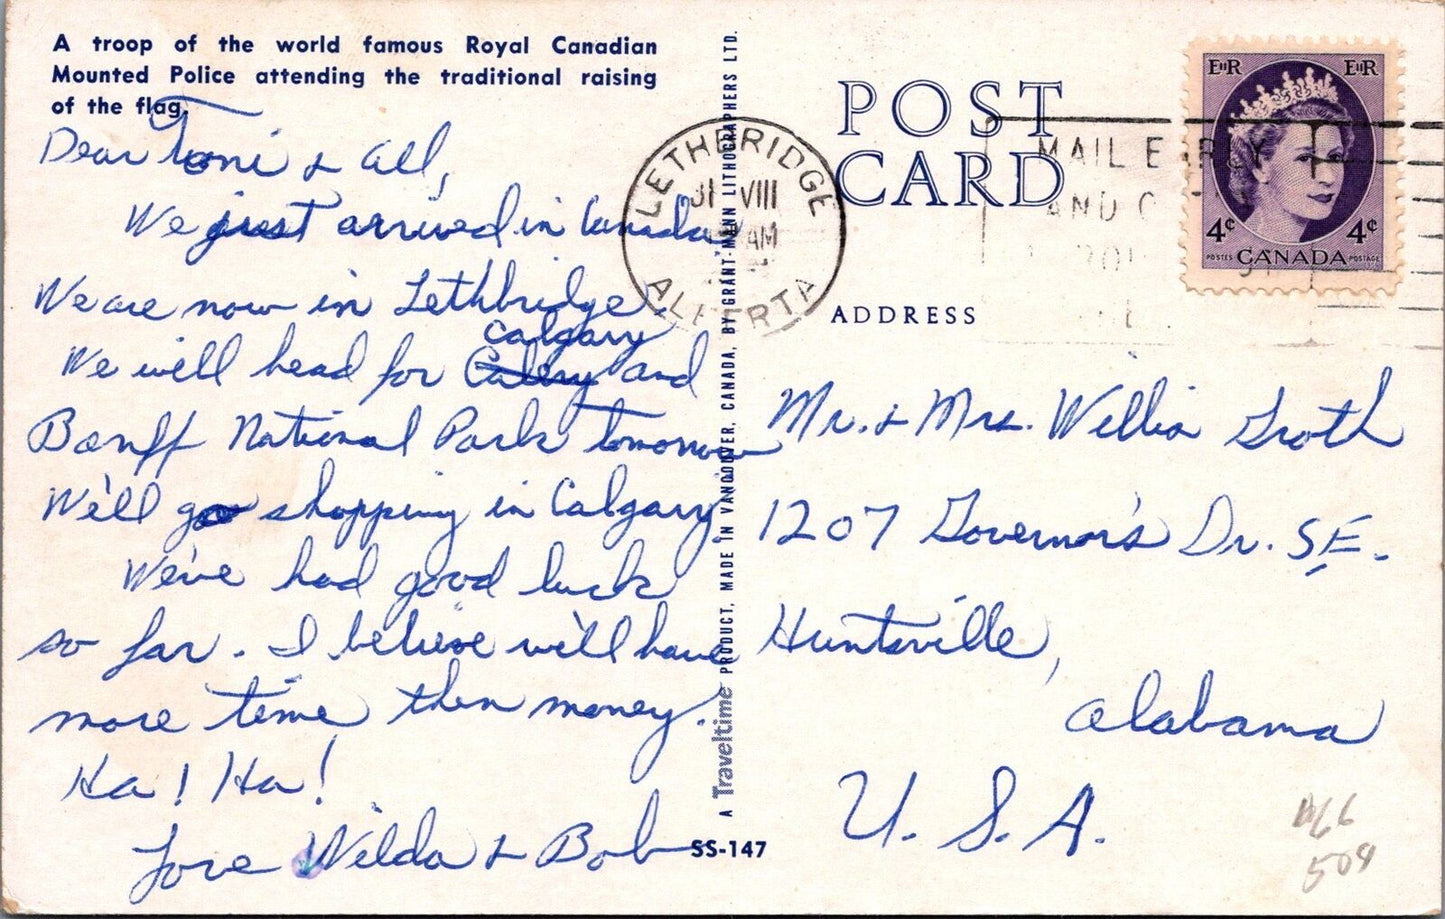 A troop of the world famous Royal Canadian
Mounted Police attending the traditional raising
of the flag.
Dear Toni & all,
We just arrived in Canada
We are now in Lethbridge.
Calgary
We will head for and
Banff National Park tomorrow
We'll go shopping in Calgary.
We've had good luck
so far. I believe we'll have
more time then money.
Ha! Ha!
Love Wilda & Bob
SS-147
A Traveltime PRODUCT, MADE IN VANCOUVER, CANADA, BY GRANT-MANN LITHOGRAPHERS LTD.
LETHBRIDGE
31 VIII
AM
ALBERTA
POST
CARD
MAIL EARLY
AND
EIIR EIIR
4¢ 4¢
POSTES CANADA POSTAGE
ADDRESS
Mr. & Mrs. Willis Groth
1207 Governor's Dr. SE.
Huntsville,
Alabama
U.S.A.
508